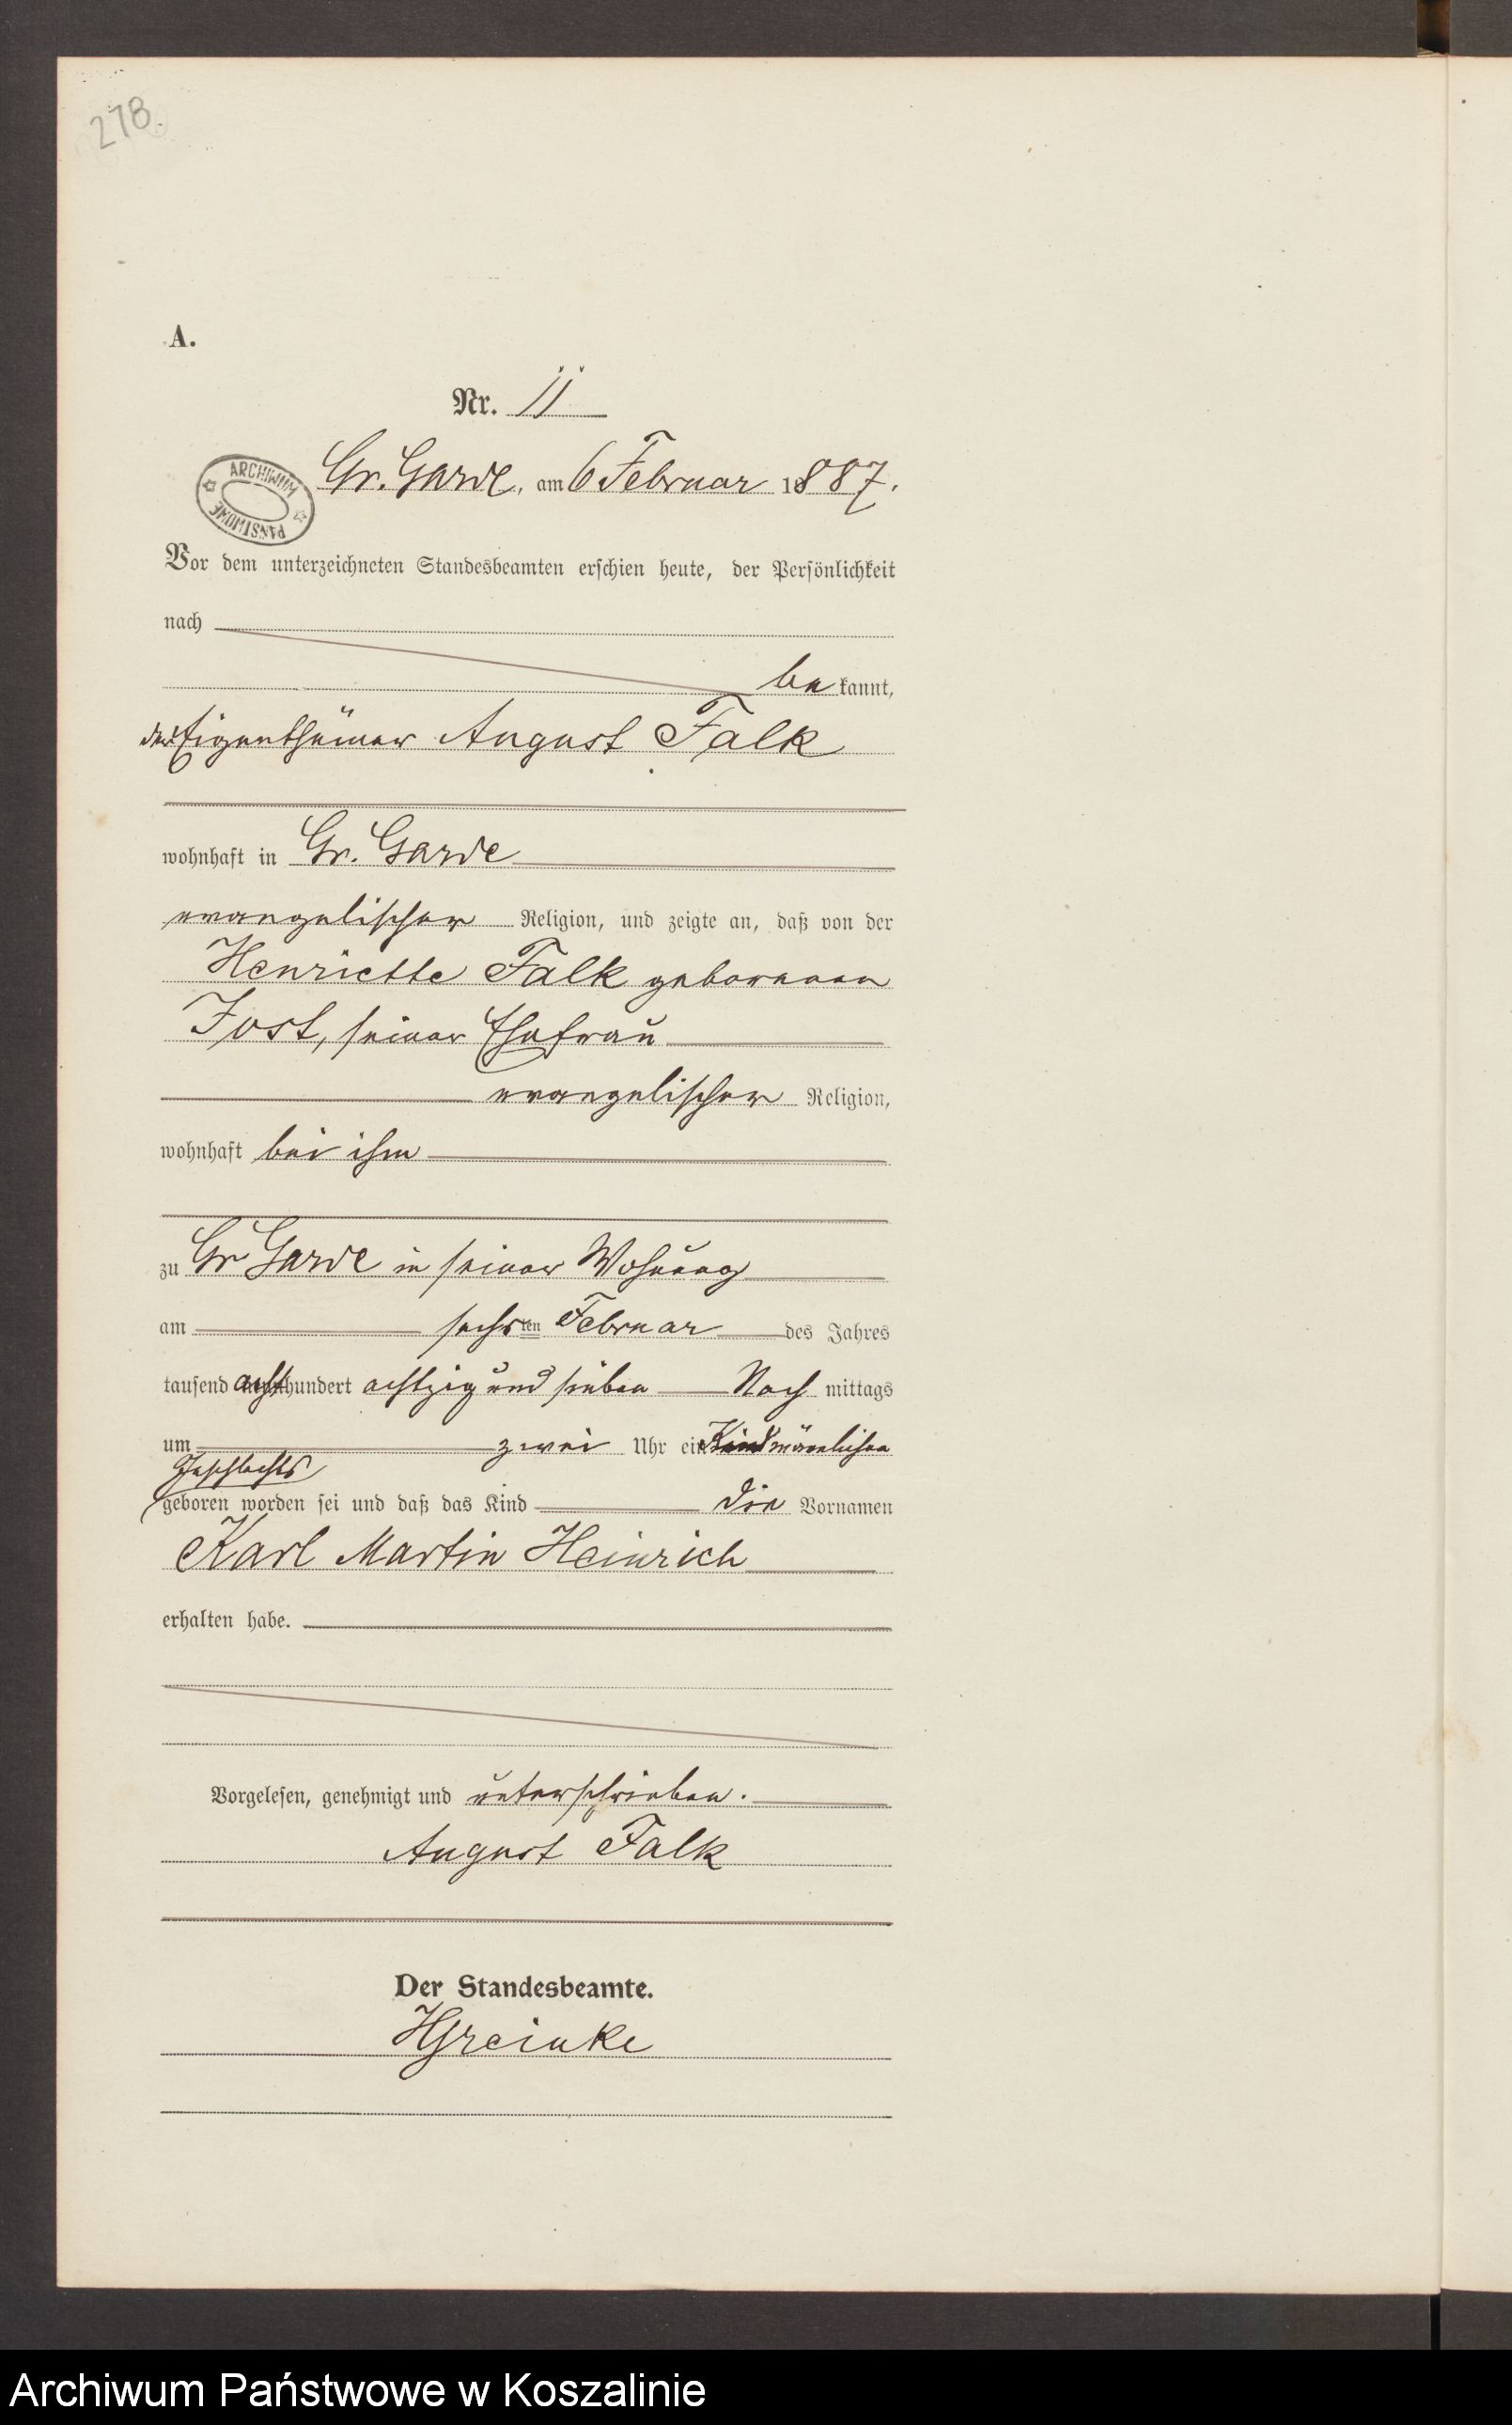 278.
A.
Nr. 11
ARCHIWUM PAŃSTWOWE
Gr. Garde, am 6 Februar 1887.
Vor dem unterzeichneten Standesbeamten erschien heute, der Persönlichkeit
nach
be kannt,
der Eigenthümer August Falk
wohnhaft in Gr. Garde
evangelischer Religion, und zeigte an, daß von der
Henriette Falk geborenen
Jost, seiner Ehefrau
evangelischer Religion,
wohnhaft bei ihm
zu Gr Garde in seiner Wohnung
am sechsten Februar des Jahres
tausend achthundert achtzig und sieben Nach mittags
um zwei Uhr ein Kind männlichen
Geschlechts
geboren worden sei und daß das Kind die Vornamen
Karl Martin Heinrich
erhalten habe.
Vorgelesen, genehmigt und unterschrieben.
August Falk
Der Standesbeamte.
Archiwum Państwowe w Koszalinie